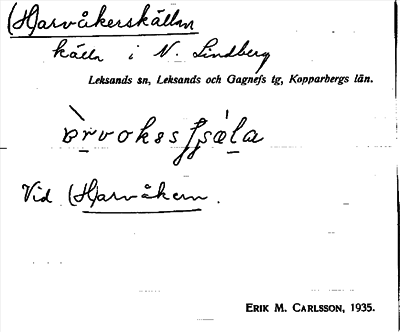 (H)arvåkerskällan
källa i N. Lindberg
Leksands sn, Leksands och Gagnefs tg, Kopparbergs län.
Vid (H)arvåkern.
ERIK M. CARLSSON, 1935.